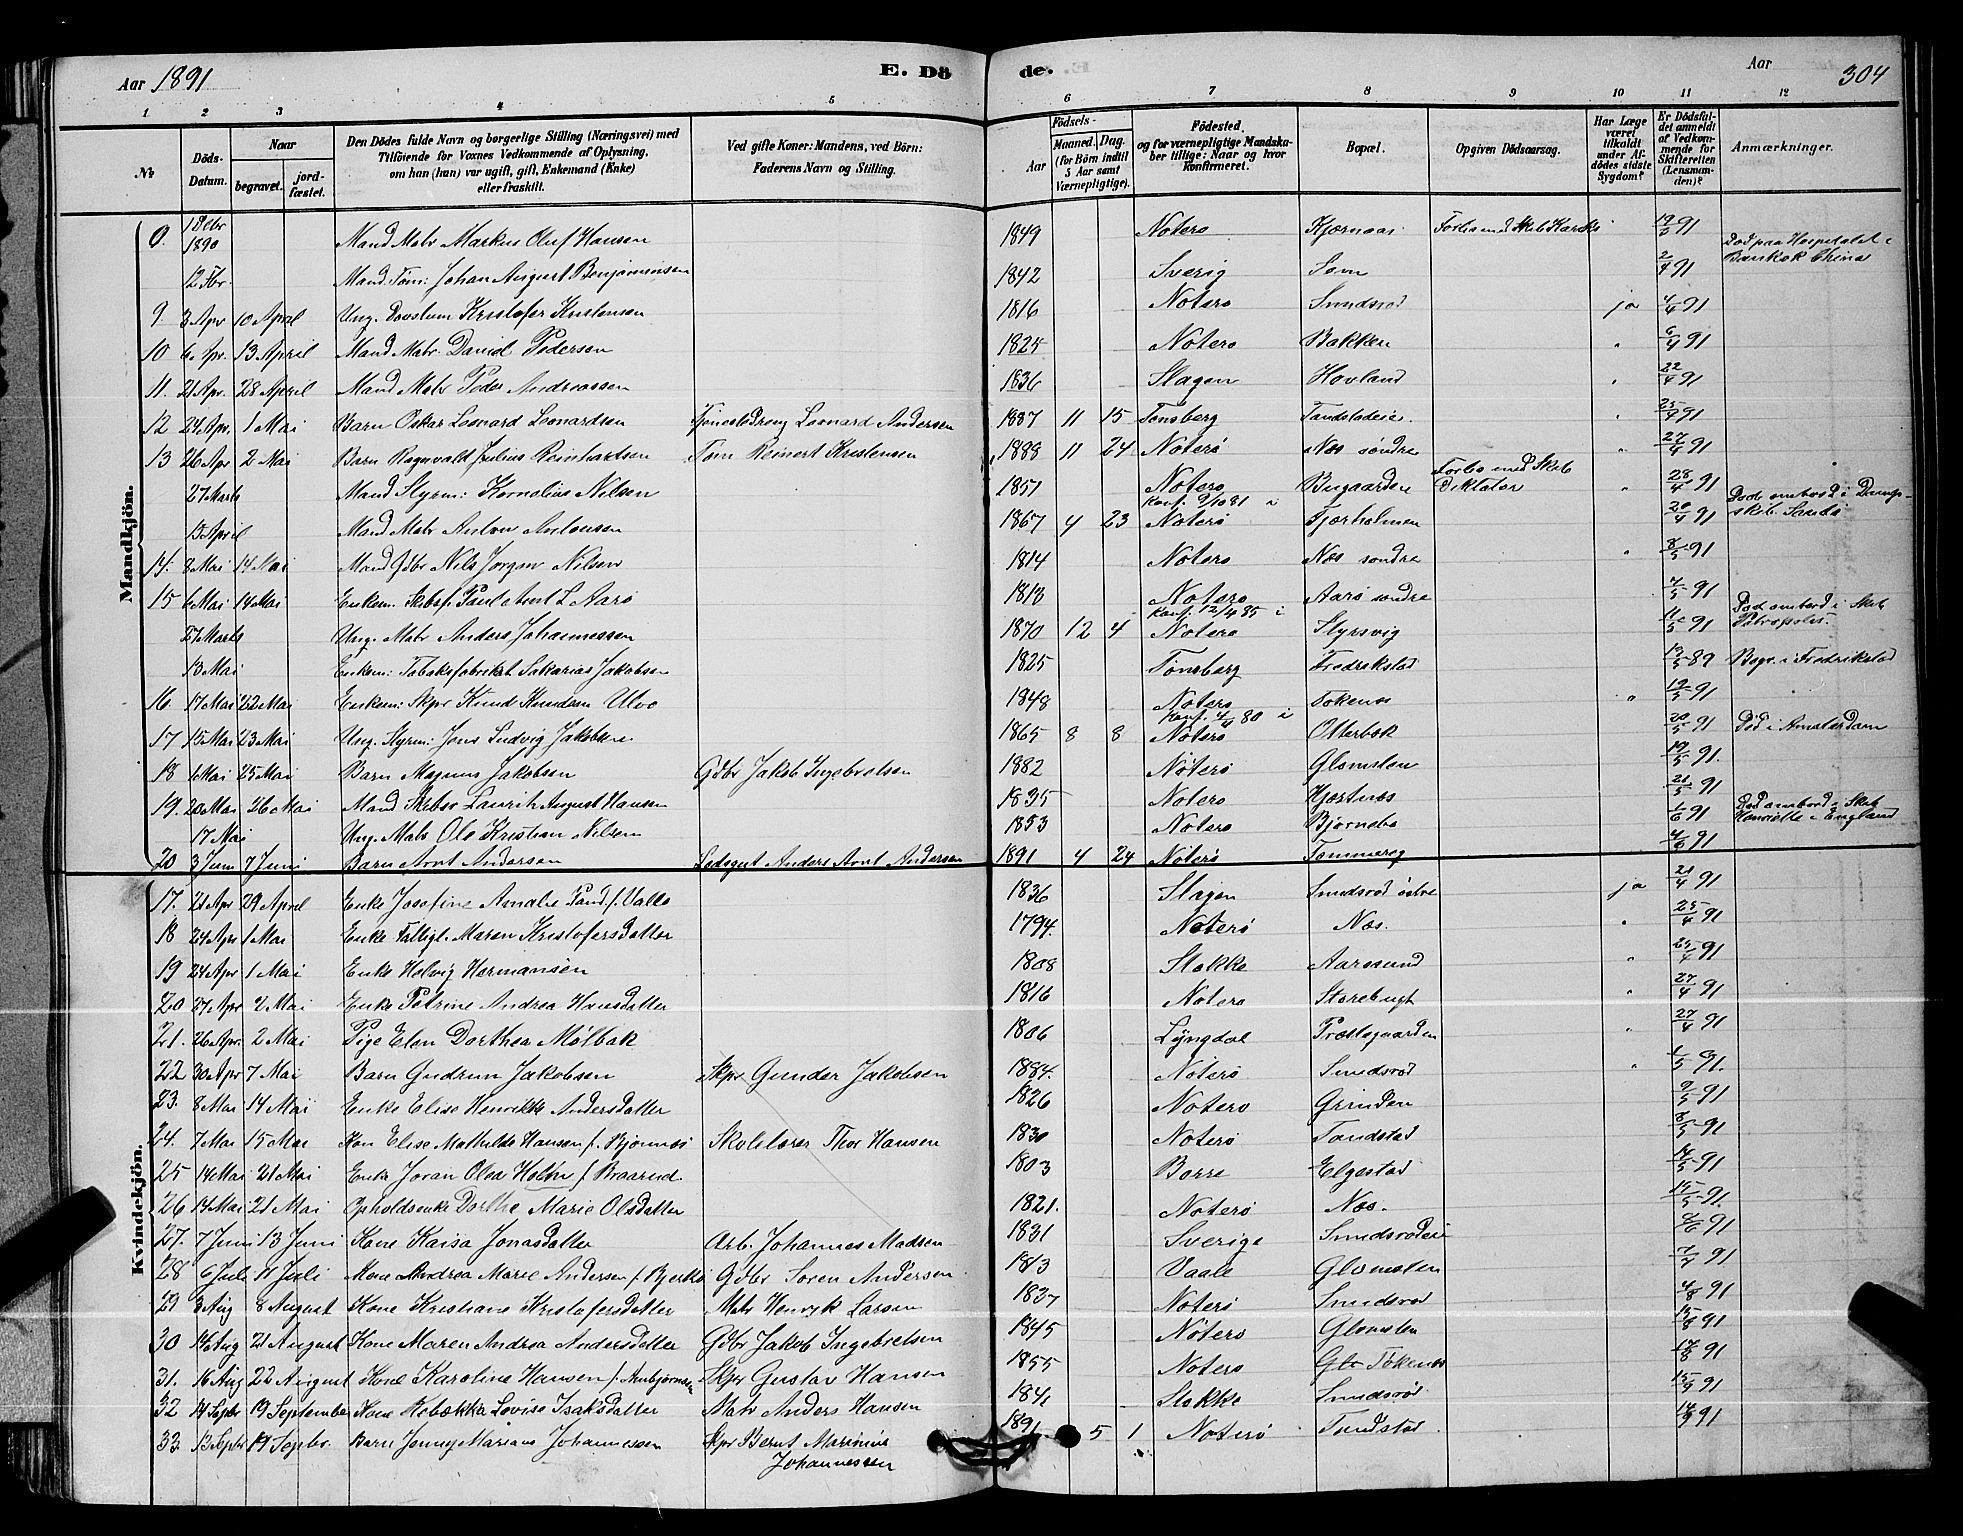 Aar 1891
E. Dö de.
Aar
304
1 2 3 4 5 6 7 8 9 10 11 12
No
Döds-Datum.
Naar begravet. jord-fæstet.
Den Dödes fulde Navn og borgerlige Stilling (Næringsvei) med Tilföiende for Voxnes Vedkommende af Oplysning, om han (hun) var ugift, gift, Enkemand (Enke) eller fraskilt.
Ved gifte Koner: Mandens, ved Börn: Faderens Navn og Stilling.
Födsels-
Aar Maaned. Dag. (for Börn indtil 5 Aar samt Værnepligtige).
Födested, og for værnepligtige Mandskaber tillige: Naar og hvor konfirmeret.
Bopæl.
Opgiven Dödsaarsag.
Har Læge været tilkaldt under Afdödes sidste Sygdom?
Er Dödsfaldet anmeldt af Vedkommende for Skifteretten (Lensmanden)?
Anmærkninger.
Mandkjön.
1890 Mand Matr Markus Oluf Hansen 1849 Noterø Kjærnaas 91 Død paa Hospitalet i Bankok China
Mand Tøm: Johan August Benjaminsen 1842 Sverig 2/4 91
9 3 Apr 10 April Ung. Kristofer Kristensen 1816 Noterø Smidsrød ja 4/4 91
10 6 Apr. 13 April Mand Matr. Daniel Pedersen 1825 Noterø Bakken " 6/4 91
11. 21 Apr. 28 April Mand Matr Peder Andreassen 1836 Slagen Hovland " 22/4 91
12 24 Apr. 1 Mai Barn Oskar Leonard Leonardsen Tjenestedreng Leonard Andersen 1887 11 15 Tønsberg " 25/4 91
13 26 Apr 2 Mai Barn Ragnvald Julius Reinhartsen Tøm Reinert Kristensen 1888 11 24 Noterø Næs søndre " 27/4 91
27 Marts Mand Styrm: Kornelius Nilsen 1851 Noterø Bugaarden Forlis med Skib Diktator " 28/4 91
15 April Mand Matr Anton Antonsen 1867 4 23 Konf. 9/10 81 i Noterø Fjærholmen 91 Døde ombord i Dampskib
14. 8 Mai 14 Mai Mand Gdbr Nils Jørgen Nilsen 1814 Noterø Næs søndre " 8/5 91
15 6 Mai 14 Mai Enkem. Skibsf. Paul Ant L Aarø 1813 Noterø Aarø søndre 4/5 91
27 Marts Ung. Matr Anders Johannessen 1870 12 4 Konf. 12/4 85 i Noterø Styrsvig 11/5 91 Død ombord i Skib Petropolis.
13 Mai Enkem: Tobaksfabrikat Sakarias Jakobsen 1825 Tønsberg Fredrikstad 89 Begr. i Fredrikstad
16 17 Mai 22 Mai Enkem: Skpr Knud Knudsen Ulvø 1848 Noterø Tokenæs " 19/5 91
17 15 Mai 23 Mai Ung. Styrm: Jens Ludvig Jakobsen 1865 8 8 Konf. 4/4 80 i Noterø Otterbæk 20/5 91 Død i Amsterdam
18 6 Mai 25 Mai Barn Magnus Jakobsen Gdbr Jakob Ingebretsen 1882 Nøterø Glomsten 19/5 91.
19. 20 Mai 26 Mai Mand Laurits August Hansen 1835 Noterø Hjertnes 21/5 91
17 Mai Ung. Matr Ole Kristian Nilsen 1853 Noterø Bjørnebo 1/6 91 Død ombord i Skib Henriette i England
20 3 Juni 7 Juni Barn Arnt Andersen Lodsgut Anders Arnt Andersen 1891 4 24 Nøterø 4/6 91
Kvindekjön.
17. 21 Apr 29 April Enke Josefine Amalie Sand f. Valle 1836 Slagen Smidsrød østre ja 21/4 91
18 24 Apr 1 Mai Enke Fattigl. Maren Kristofersdatter 1794. Noterø Næs. " 25/4 91
19 24 Apr 1 Mai Enke Helvig Hermansen 1808 Stokke Aarøsund " 25/4 91
20 27 Apr 2 Mai Enke Petrine Andrea Hansdatter 1816 Noterø Storebugt " 27/4 91
21. 26 Apr. 2 Mai Pige Elen Dorthea Mølbak 1806 Lyngdal Præstegaarden " 27/4 91
22 30 Apr 7 Mai Barn Gudrun Jakobsen Skpr Gunder Jakobsen 1884. Nøterø Smidsrød " 1/5 91.
23. 8 Mai 14 Mai Enke Elise Henrikke Andersdatter 1826 Noterø Grinden 9/5 91
24. 7 Mai 15 Mai Kone Elise Mathilde Hansen f. Bjønnes Skolelærer Thor Hansen 1830 Noterø Tandstad 8/5 91
25 14 Mai 21 Mai Enke Joran Olea Holm f. Braarud 1803 Borre Elgestad 14/5 91
26 14 Mai 21 Mai Opholdsenke Dorthe Marie Olsdatter 1821. Noterø Næs. 15/5 91.
27. 7 Juni 13 Juni Kone Kaisa Jonasdatter Arb. Johannes Madsen 1831 Sverige Smidsrødeie 91
28 6 Juli 11 Juli Kone Andrea Marie Andersen f. Bjerkø Gdbr Søren Andersen 1813 Vaale Glomsten 7/7 91
29 3 Aug 8 August Kone Kristiane Kristofersdatter Matr Henrik Larsen 1837 Noterø Smidsrød 4/8 91
30 14 Aug 21 August Kone Maren Andrea Andersdatter Gdbr Jakob Ingebretsen 1845 Nøterø Glomsten 15/8 91
31. 16 Aug 22 August Kone Karoline Hansen f. Anbjørnsen Skpr Gustav Hansen 1855 Noterø Glo Tokenes 91
32 14 Sepbr 19 September Kone Rebækka Lovise Isaksdatter Matr Anders Hansen 1841 Stokke Smidsrød 15/9 91
33. 13 Sepbr 19 Sepbr. Barn Jenny Mariane Johannessen Skpr Bernt Marinius Johannessen 1891 5 1 Noterø Tandstad 14/9 91